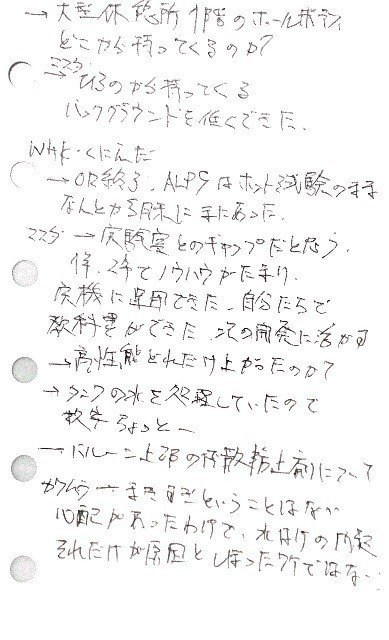 →大型休憩所1階のホールボディ
どこから持ってくるのか?
ひろのから持ってくる
バックグラウンドを低くできた、
NHK・くにえだ
→OR終了、ALPSはホット試験のまま
なんとか
→実験室とのギャップだと思う、
1年、2年でノウハウがたまり、
実機に運用できた、自分たちで
教科書ができた、次の開発に活かす
→高性能どれだけ上がったのか?
→タンクの水を処理していたので
数字ちょっと〜
→バルーン上部の飛散防止剤について
→まきすぎということはない
心配があったわけで、水はけの
それだけが原因としぼったワケではない、